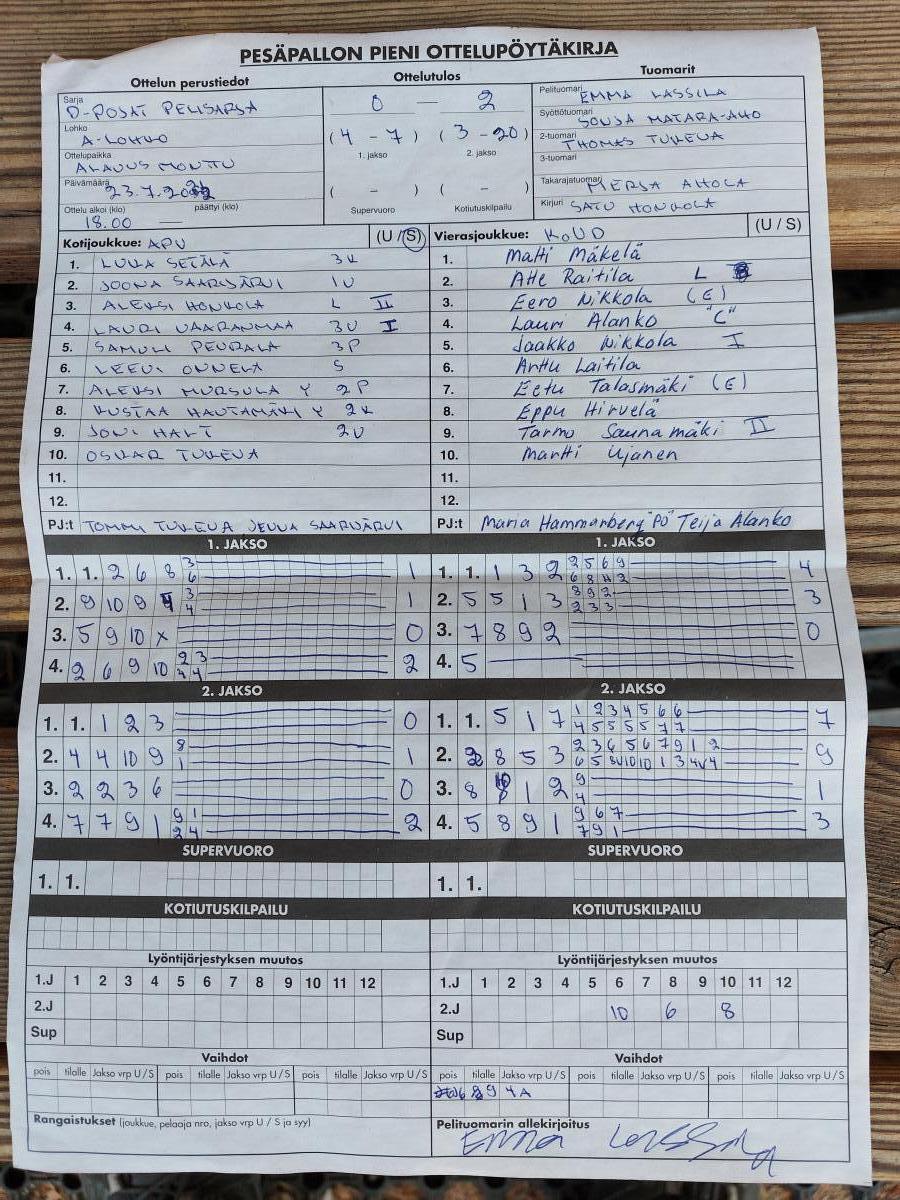 PESÄPALLON PIENI OTTELUPÖYTÄKIRJA
Ottelun perustiedot
Ottelutulos
Tuomarit
Sarja
D-POJAT PELISARJA
Lohko
A-LOHKO
Ottelupaikka
ALAVUS MONTTU
Päivämäärä
23.7.
Ottelu alkoi (klo) päättyi (klo)
18.00 —
0 — 2
(4 - 7) (3 - 20)
1. jakso 2. jakso
( - ) ( - )
Supervuoro Kotiutuskilpailu
Pelituomari EMMA LASSILA
Syöttötuomari SONJA MATARA-AHO
2-tuomari THOMAS TULEVA
3-tuomari
Takarajatuomari MERJA AHOLA
Kirjuri SATU HONKOLA
Kotijoukkue: APU (U / S)
1. LUKA SETÄLÄ 3K
2. JOONA SAARIJÄRVI 1V
3. ALEKSI HONKOLA L II
4. LAURI VAARANMAA 3V I
5. SAMULI PEURALA 3P
6. LEEVI ONNELA S
7. ALEKSI MURSULA Y 2P
8. KUSTAA HAUTAMÄKI Y 2K
9. JONI HAKT 2V
10. OSKAR TULEVA
11.
12.
PJ:t TOMMI TULEVA JENNA SAARIJÄRVI
Vierasjoukkue: KoUD (U / S)
1. Matti Mäkelä
2. Atte Raitila L
3. Eero Nikkola (E)
4. Lauri Alanko "C"
5. Jaakko Nikkola I
6. Arttu Laitila
7. Eetu Talasmäki (E)
8. Eppu Hirvelä
9. Tarmo Saunamäki II
10. Martti Ujanen
11.
12.
PJ:t Maria Hammarberg "PJ" Teija Alanko
1. JAKSO
1. 1. 2 6 8 3 6 1
2. 9 10 9 4 3 4 1
3. 5 9 10 x 0
4. 2 6 9 10 2 3 4 4 2
1. JAKSO
1. 1. 1 3 2 2 5 6 9 6 8 4 2 4
2. 5 5 1 3 8 9 2 2 3 3 3
3. 7 8 9 2 0
4. 5
2. JAKSO
1. 1. 1 2 3 0
2. 4 4 10 9 8 1 1
3. 2 2 3 6 0
4. 7 7 9 1 9 1 2 4 2
2. JAKSO
1. 1. 5 1 7 1 2 3 4 5 6 6 4 5 5 5 5 7 7 7
2. 8 5 3 2 3 6 5 6 7 9 1 2 9
3. 8 1 2 9 4 1
4. 5 8 9 1 9 6 7 7 9 1 3
SUPERVUORO
1. 1.
SUPERVUORO
1. 1.
KOTIUTUSKILPAILU
KOTIUTUSKILPAILU
Lyöntijärjestyksen muutos
1.J 1 2 3 4 5 6 7 8 9 10 11 12
2.J
Sup
Lyöntijärjestyksen muutos
1.J 1 2 3 4 5 6 7 8 9 10 11 12
2.J 10 6 8
Sup
Vaihdot
pois tilalle Jakso vrp U / S pois tilalle Jakso vrp U / S pois tilalle Jakso vrp U / S
Vaihdot
pois tilalle Jakso vrp U / S pois tilalle Jakso vrp U / S pois tilalle Jakso vrp U / S
Rangaistukset (joukkue, pelaaja nro, jakso vrp U / S ja syy)
Pelituomarin allekirjoitus
Emma Lassila